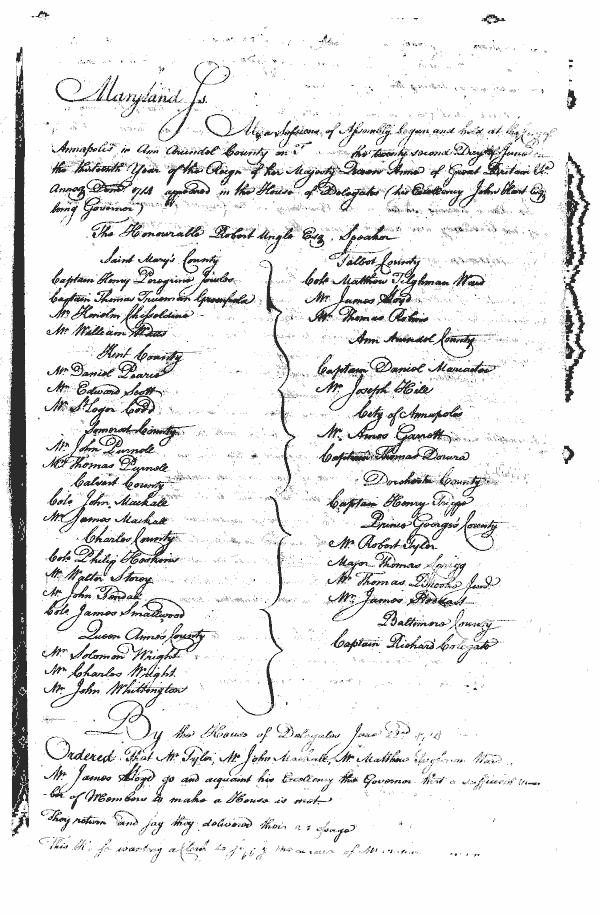 Maryland Ss.
At a Sessions of Assembly begun and held at the City of
Annapolis in Ann Arundel County on the twenty second Day of June in
the thirteenth Year of the Reign of her Majesty Queen Anne of Great Britain &c
Annoq Domi 1714 appeared in the House of Delegates (his Excellency John Hart Esq
being Governor)
The Honourable Robert Ungle Esq Speaker
Saint Mary's County
Captain Henry Peregrine Jowles
Captain Thomas Trueman Greenfield
Mr Kenelm Cheseldine
Mr William
Kent County
Mr Daniel Pearce
Mr Edward Scott
Mr St Leger Codd
Somerset County
Mr John Purnell
Mr Thomas Purnell
Calvert County
Colo John Mackall
Mr James Mackall
Charles County
Colo Philip Hoskins
Mr Walter Story
Mr John Fendall
Colo James Smallwood
Queen Annes County
Mr Solomon Wright
Mr Charles Wright
Mr John Whittington
Talbot County
Colo Matthew Tilghman Ward
Mr James Lloyd
Mr Thomas Robins
Ann Arundel County
Captain Daniel Mariartee
Mr Joseph Hill
City of Annapolis
Mr Amos Garrett
Captain Thomas
Dorchester County
Captain Henry Trippe
Prince George's County
Mr Robert Tyler
Major Thomas Sprigg
Mr Thomas Brooke Junr
Mr James Stoddart
Baltimore County
Captain Richard Colegate
By the House of Delegates June 22nd 1714
Ordered That Mr Tyler, Mr John Mackall, Mr Matthew Tilghman Ward
Mr James Lloyd go and acquaint his Excellency the Governor that a sufficient num
ber of Members to make a House is met
They return and say they delivered their message
This House wanting a Clerk to